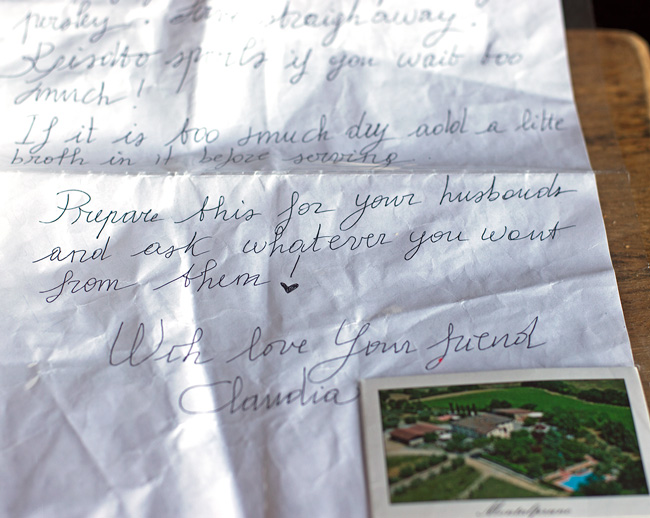 parsley. Serve straigh away.
Reisotto spoils if you wait too
smuch!
If it is too smuch dry add a litte
broth in it before serving
Prepare this for your husbands
and ask whatever you want
from them!
With love Your friend
Claudia